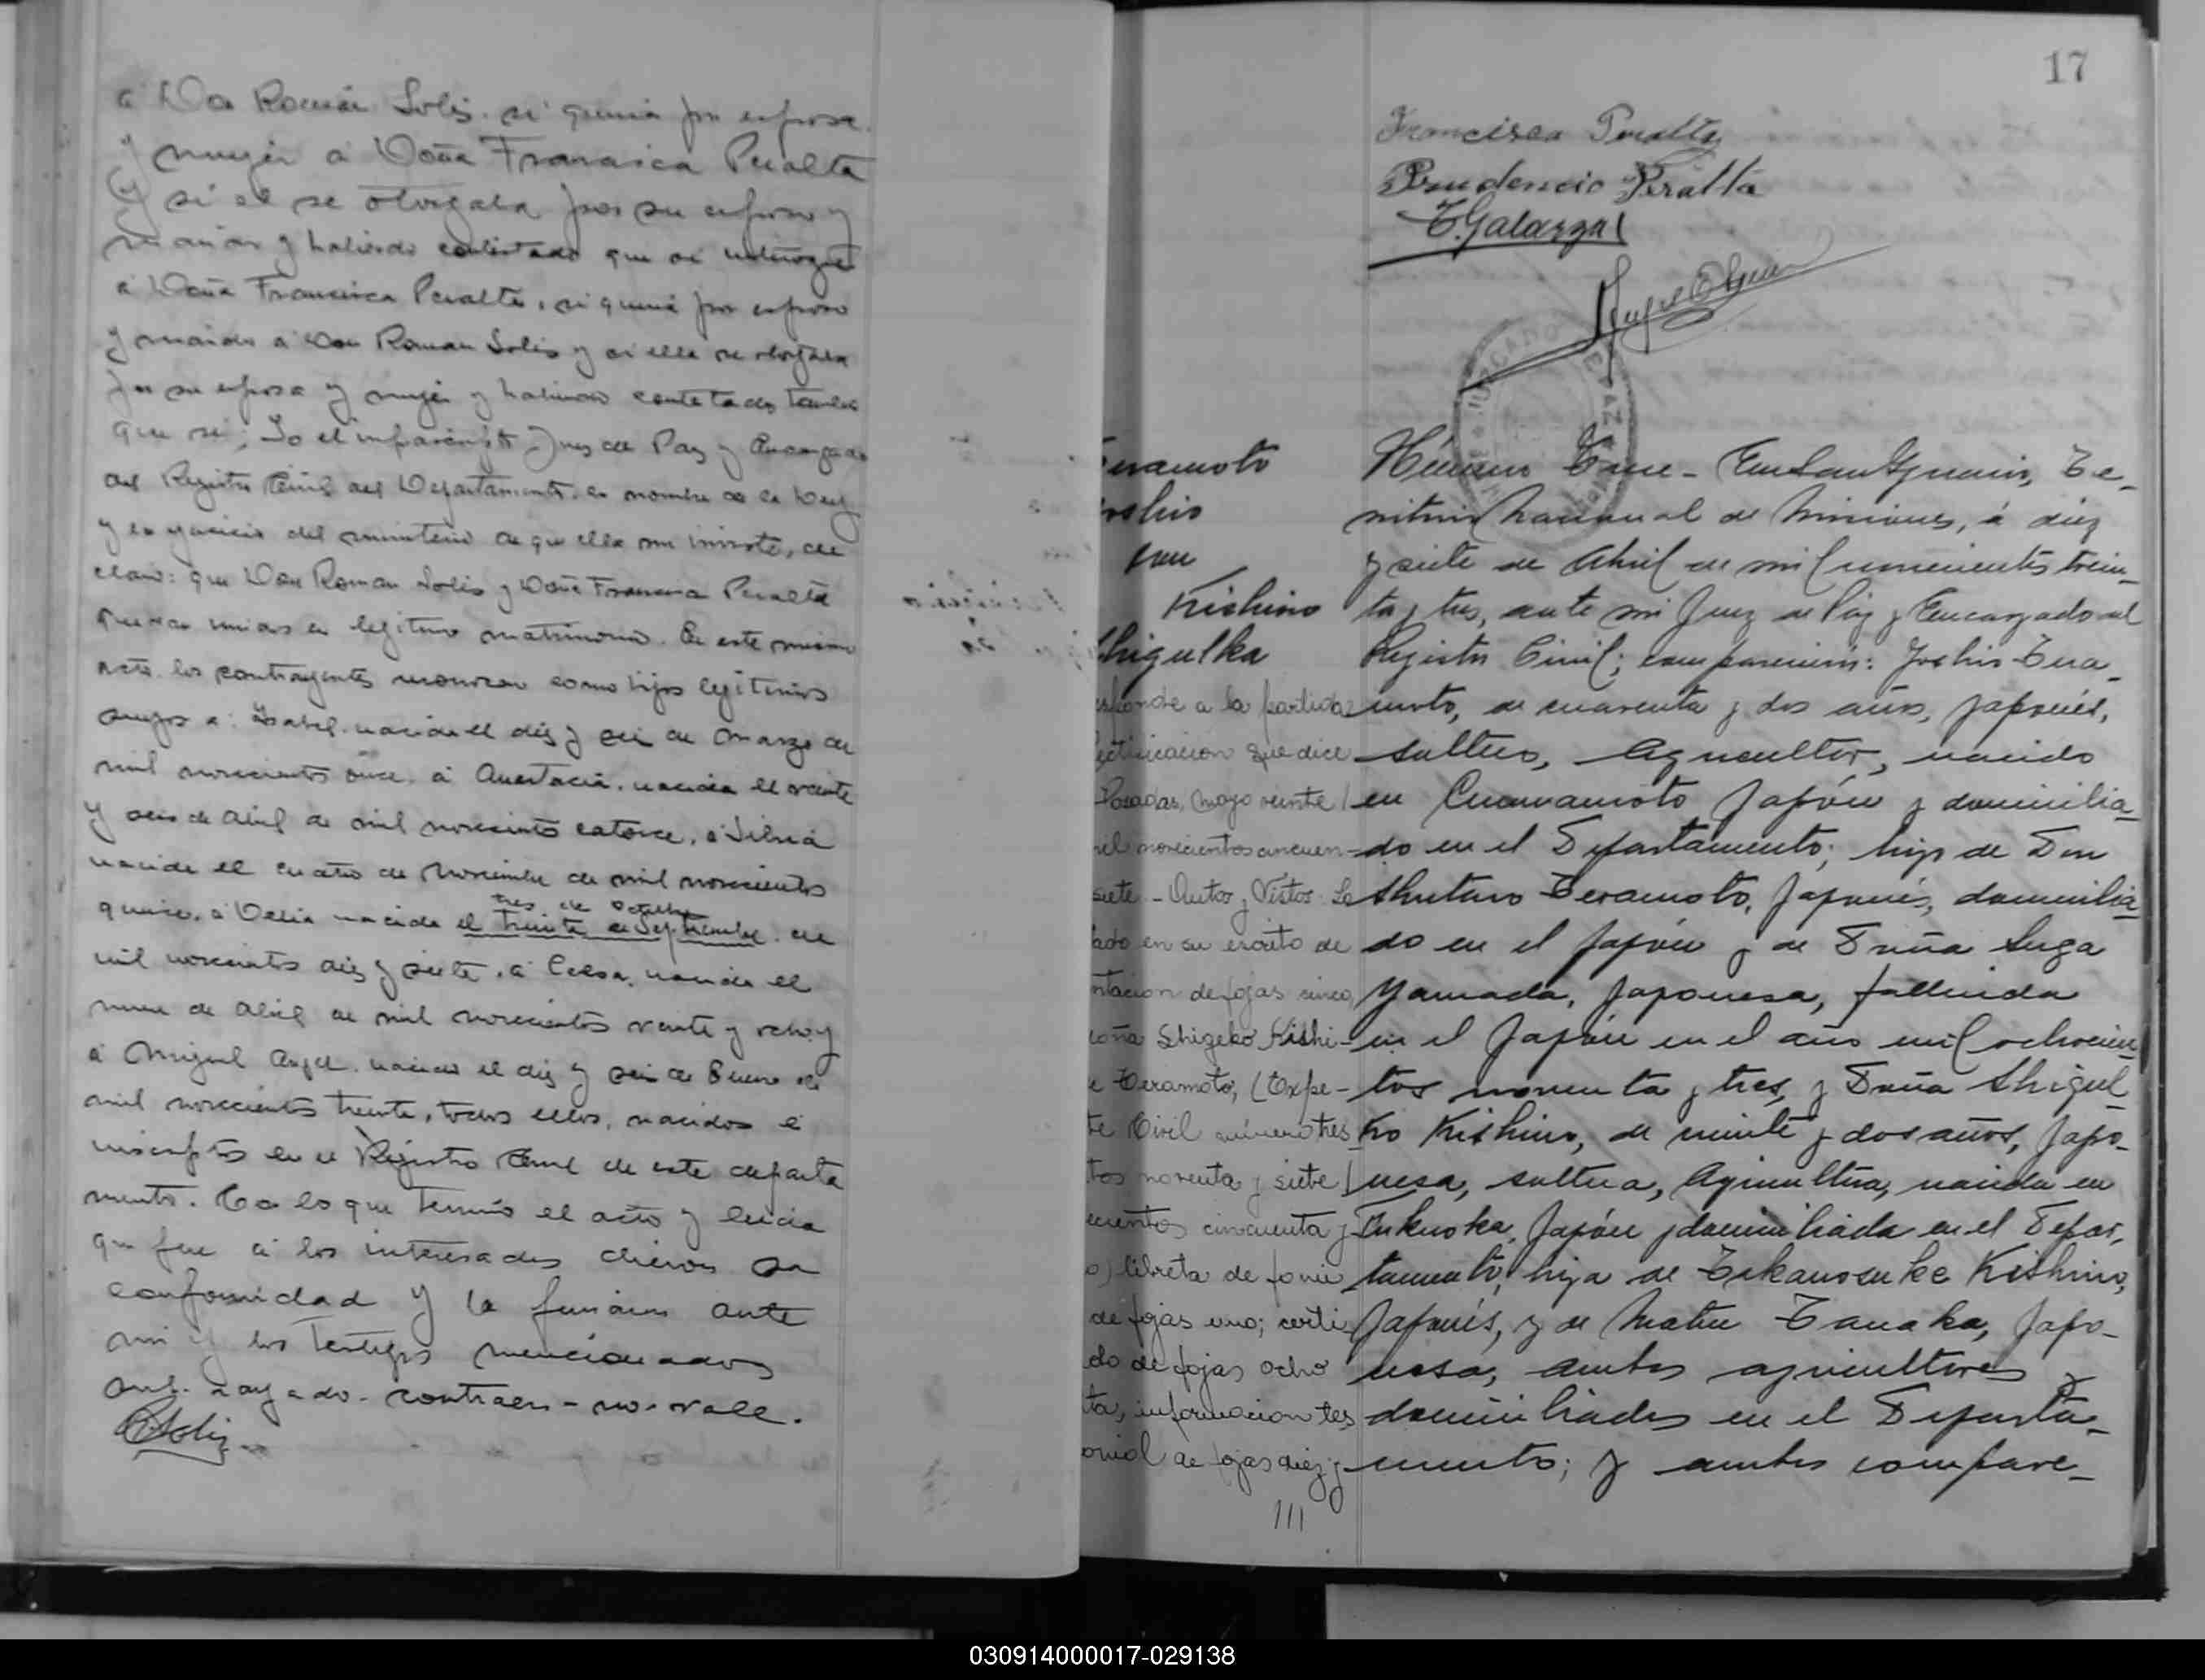 á Don Román Solis, si queria por esposa
y mujer á Doña Francisca Peralta
y si el se otorgaba por su esposo y
marido y habiendo contestado que si interrogué
á Doña Francisca Peralta, si queria por esposo
y marido á Don Roman Solis y si ella se otorgaba
por su esposa y mujer y habiendo contestado tambien
que si; Yo el infrascripto Juez de Paz y Encargado
del Registro Civil del Departamento, en nombre de la Ley
y en ejercicio del ministerio de que ella me inviste, de
claro: que Don Roman Solis y Doña Francisca Peralta
quedan unidos en legitimo matrimonio. En este mismo
acto los contrayentes reconocen como hijos legitimos
suyos á: Isabel, nacida el diez y seis de Marzo de
mil novecientos once, á Anastacia, nacida el veinte
y seis de Abril de mil novecientos catorce, á Silvia
nacida el cuatro de Noviembre de mil novecientos
tres de Octubre
quince, á Delia nacida el treinta de Septiembre de
mil novecientos diez y siete, á Celsa, nacida el
nueve de Abril de mil novecientos veinte y ocho y
á Miguel Angel, nacido el diez y seis de Enero de
mil novecientos treinta, todos ellos, nacidos é
inscriptos en el Registro Civil de este departa
mento. Con lo que terminó el acto y leida
que fue á los interesados dieron su
conformidad y la firmaron ante
mi y los testigos mencionados
rayado - contraen - no - vale.
R Solis
17
Francisca Peralta
Prudencio Peralta
T. Galarza
JUZGADO DE PAZ
eramoto
oshio
con
Kishino
Shigulka
esponde a la partida
ectificacion que dice
Posadas, mayo veinte
mil novecientos cincuen-
siete - Autos y Vistos: Lo
tado en su escrito de
ntacion de fojas cinco
doña Shigeko Kishi-
e Teramoto, (Expe-
te Civil número tres
tos noventa y siete
ecientos cincuenta y
o) libreta de fami
de fojas uno; certi
do de fojas ocho
ta, informacion tes
onial de fojas diez y
111
Número Trece - En San Ygnacio, Te-
rritorio Nacional de Misiones, á diez
y siete de Abril de mil novecientos trein-
ta y tres, ante mi Juez de Paz y Encargado del
Registro Civil; comparecieron: Yoshio Tera-
moto, de cuarenta y dos años, japonés,
soltero, Agricultor, nacido
en Cumamoto Japón y domicilia-
do en el Departamento; hijo de Don
Shutaro Teramoto, Japonés, domicilia-
do en el Japón y de Doña Suga
Yamada, Japonesa, fallecida
en el Japón en el año mil ochocien-
tos noventa y tres, y Doña Shigul-
ko Kishino, de veinte y dos años, Japo-
nesa, soltera, Agricultora, nacida en
Fukuoka, Japón y domiciliada en el Depar-
tamento, hija de Takanosuke Kishino,
Japonés, y de Matsu Tanaka, Japo-
nesa, ambos agricultores y
domiciliados en el Departa-
mento; y ambos compare-
030914000017-029138